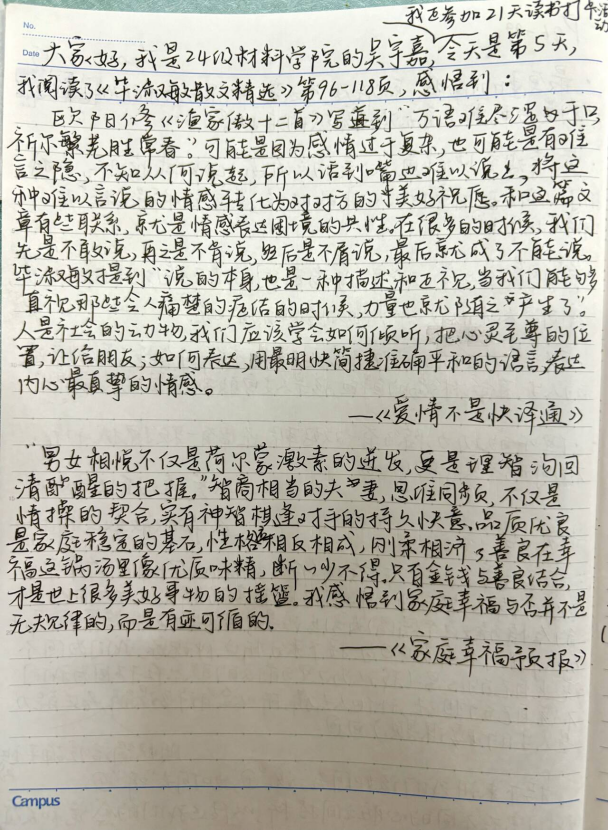 我正参加21天读书打卡活动
No.
Date 大家好,我是24级材料学院的吴宇嘉,今天是第5天,
我阅读了《毕淑敏散文精选》第96-118页,感悟到:
欧阳修《渔家傲十二首》写道到“万语难尽 只
祈尔繁芜胜常春。”可能是因为感情过于复杂,也可能是有难
言之隐,不知从何说起,所以话到嘴边难以说出,将这
种难以言说的情感转化为对对方的美好祝愿。和这篇文
章有些联系,就是情感表达困境的共性。在很多的时候,我们
先是不敢说,再之是不肯说,然后是不屑说,最后就成了不能说。
毕淑敏提到“说的本身,也是一种描述和正视,当我们能够
直视那些令人痛楚的症结的时候,力量也就随之产生了”。
人是社会的动物,我们应该学会如何倾听,把心灵至尊的位
置,让给朋友;如何表达,用最明快简捷准确平和的语言,表达
内心最真挚的情感。
——《爱情不是快译通》
“男女相悦不仅是荷尔蒙激素的迸发,更是理智洵回
清醒的把握。”智商相当的夫妻,思维同频,不仅是
情操的契合,实有神智棋逢对手的持久快意。品质优良
是家庭稳定的基石,性格相反相成,刚柔相济,善良在幸
福这锅汤里像优质味精,断断少不得。只有金钱与善良结合,
才是世上很多美好事物的摇篮。我感悟到家庭幸福与否并不是
无规律的,而是有迹可循的.
——《家庭幸福预报》
Campus